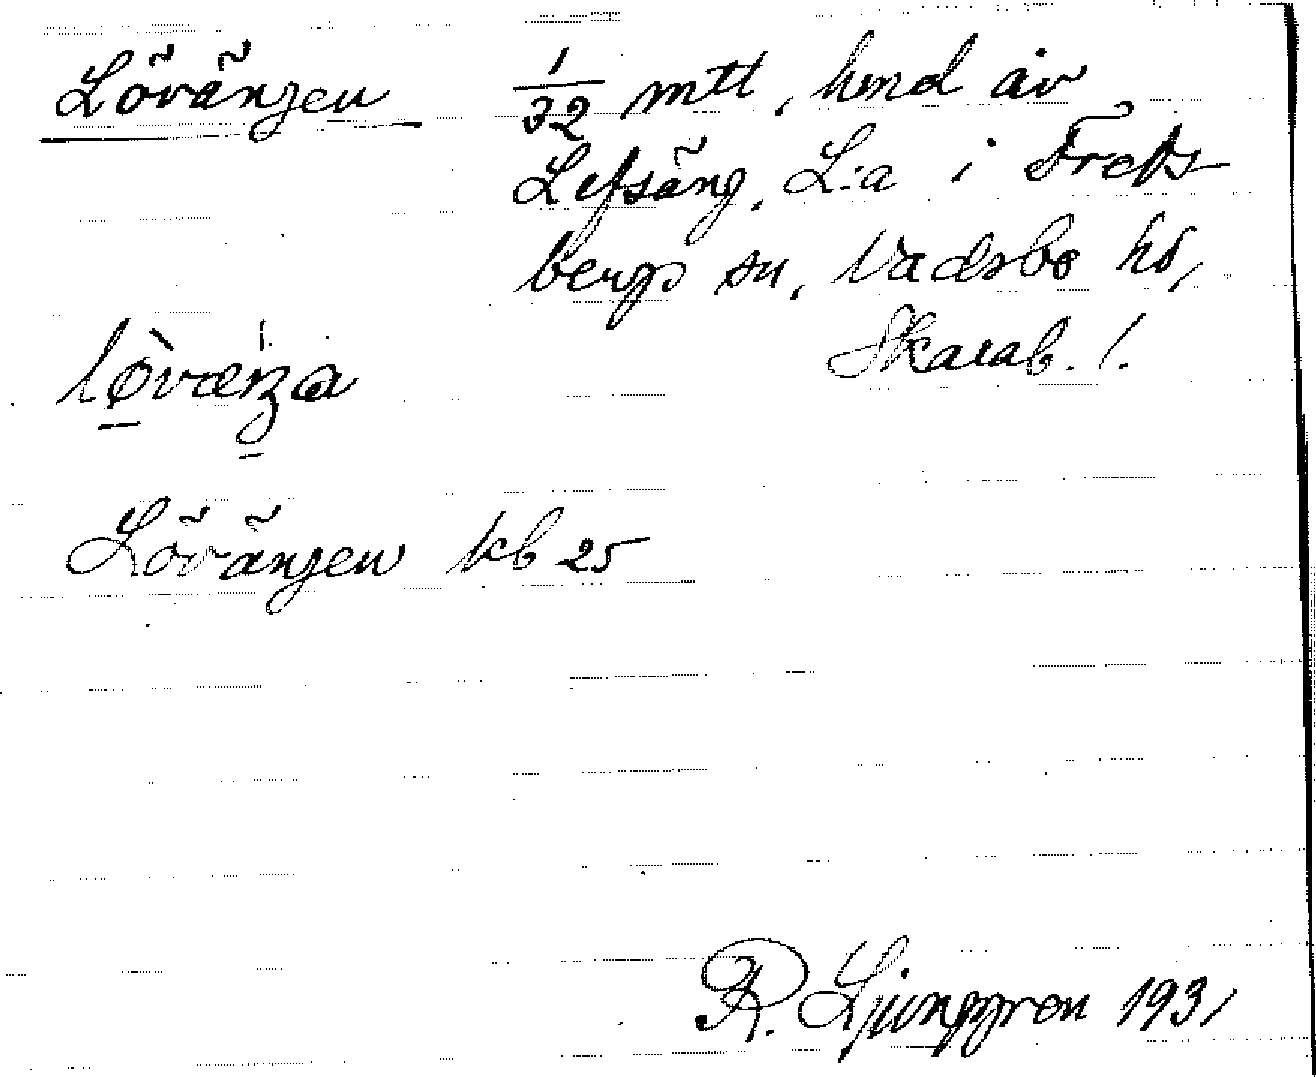 Lövängen 1/32 mtl, hmd av
Lefsäng, L:a i Freds-
bergs sn, Vadsbo hd,
Skarab. l.
Lövängen kb 25
R. Ljunggren 1931